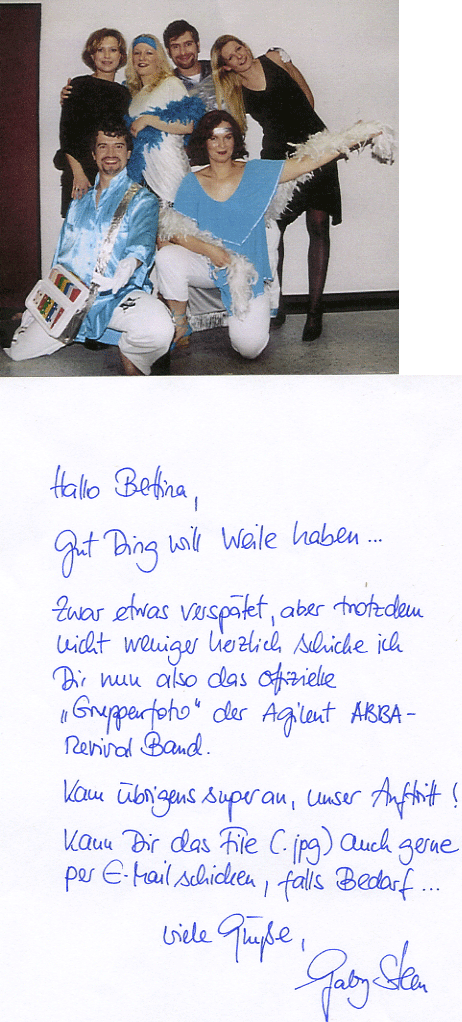 Hallo Bettina,
Gut Ding will Weile haben...
Zwar etwas verspätet, aber trotzdem
nicht weniger herzlich schicke ich
Dir nun also das offizielle
„Gruppenfoto" der Agilent ABBA-
Revival Band.
Kam übrigens super an, unser Auftritt!
Kann Dir das File (.jpg) auch gerne
per E-Mail schicken, falls Bedarf...
viele Grüße,
Gaby